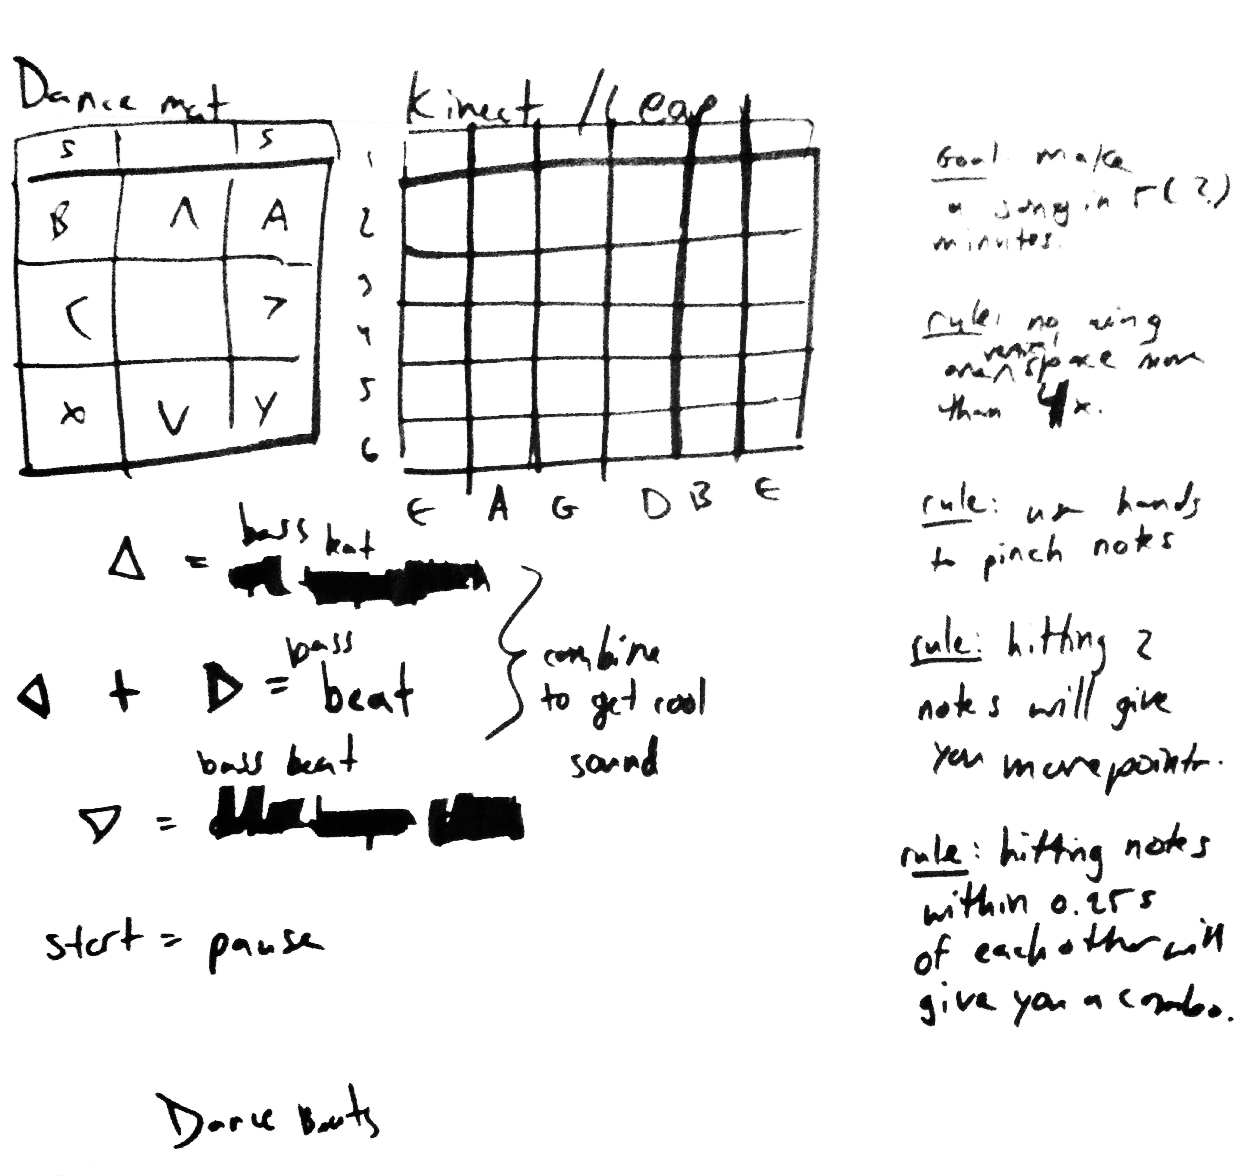 Dance mat
S S
B Λ A
< >
X V Y
Kinect / Leap
1
2
3
4
5
6
E A G D B E
Δ = bass beat
◁ + ▷ = bass beat
bass beat
▽ =
combine
to get cool
sound
start = pause
Dance Beats
Goal: make
a song in 5 (?)
minutes.
rule: no using
space more
than 4x.
rule: use hands
to pinch notes
rule: hitting 2
notes will give
you more points.
rule: hitting notes
within 0.25s
of each other will
give you a combo.